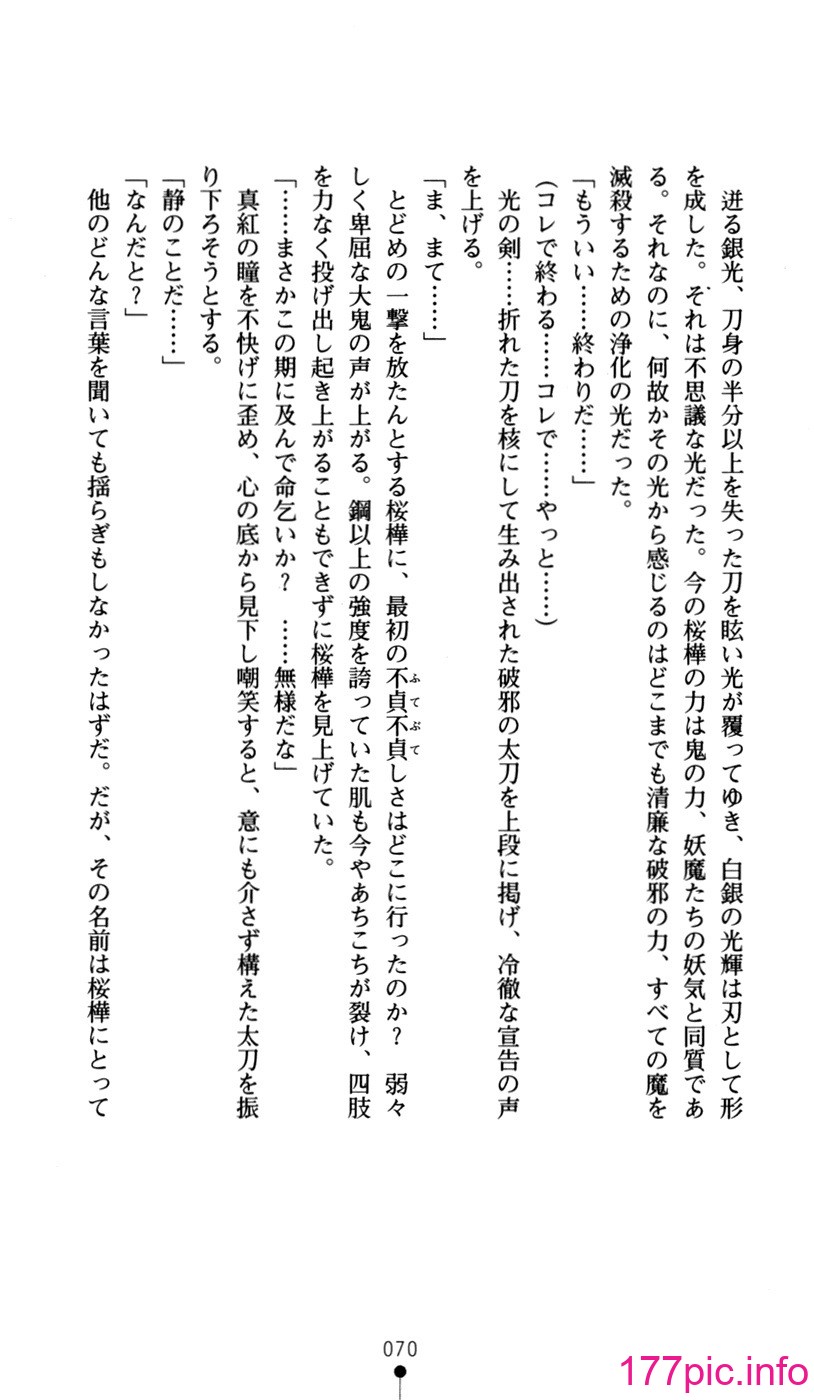 迸る銀光、刀身の半分以上を失った刀を眩い光が覆ってゆき、白銀の光輝は刃として形
を成した。それは不思議な光だった。今の桜樺の力は鬼の力、妖魔たちの妖気と同質であ
る。それなのに、何故かその光から感じるのはどこまでも清廉な破邪の力、すべての魔を
滅殺するための浄化の光だった。
「もういい……終わりだ……」
(コレで終わる……コレで……やっと……)
光の剣……折れた刀を核にして生み出された破邪の太刀を上段に掲げ、冷徹な宣告の声
を上げる。
「ま、まて……」
とどめの一撃を放たんとする桜樺に、最初の不貞不貞しさはどこに行ったのか？　弱々
ふてぶて
しく卑屈な大鬼の声が上がる。鋼以上の強度を誇っていた肌も今やあちこちが裂け、四肢
を力なく投げ出し起き上がることもできずに桜樺を見上げていた。
「……まさかこの期に及んで命乞いか？　……無様だな」
真紅の瞳を不快げに歪め、心の底から見下し嘲笑すると、意にも介さず構えた太刀を振
り下ろそうとする。
「静のことだ……」
「なんだと？」
他のどんな言葉を聞いても揺らぎもしなかったはずだ。だが、その名前は桜樺にとって
070
177pic.info